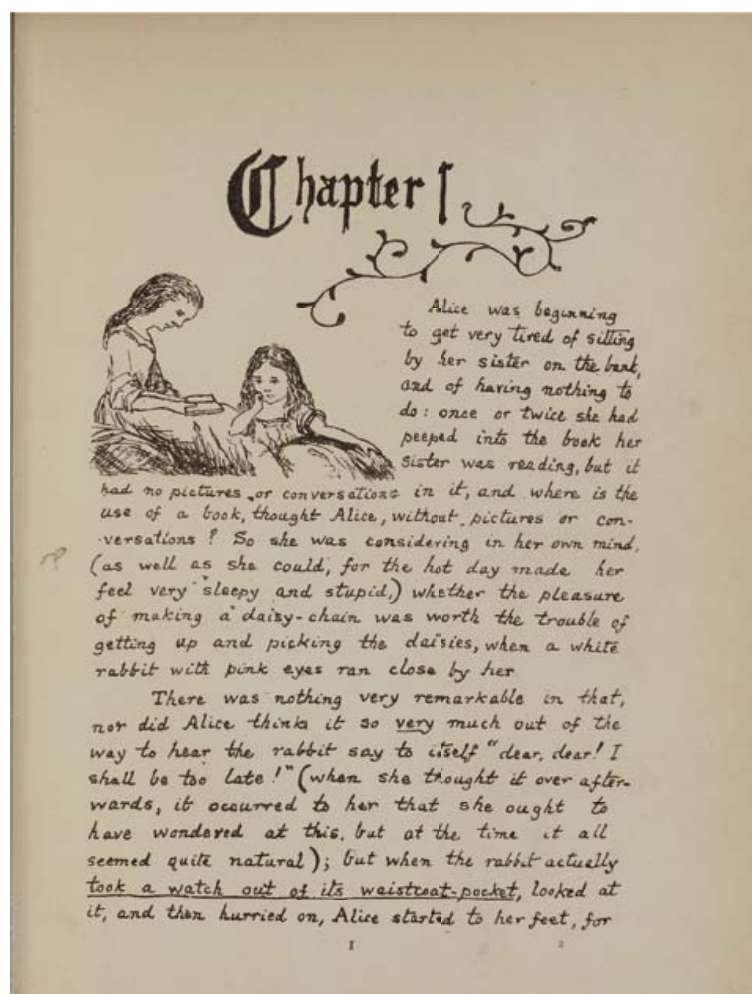 Chapter I
Alice was beginning
to get very tired of sitting
by her sister on the bank,
and of having nothing to
do: once or twice she had
peeped into the book her
sister was reading, but it
had no pictures or conversations in it, and where is the
use of a book, thought Alice, without pictures or con-
-versations? So she was considering in her own mind,
(as well as she could, for the hot day made her
feel very sleepy and stupid,) whether the pleasure
of making a daisy-chain was worth the trouble of
getting up and picking the daisies, when a white
rabbit with pink eyes ran close by her
There was nothing very remarkable in that,
nor did Alice think it so very much out of the
way to hear the rabbit say to itself "dear, dear! I
shall be too late!" (when she thought it over after-
wards, it occurred to her that she ought to
have wondered at this, but at the time it all
seemed quite natural); but when the rabbit actually
took a watch out of its waistcoat-pocket, looked at
it, and then hurried on, Alice started to her feet, for
1